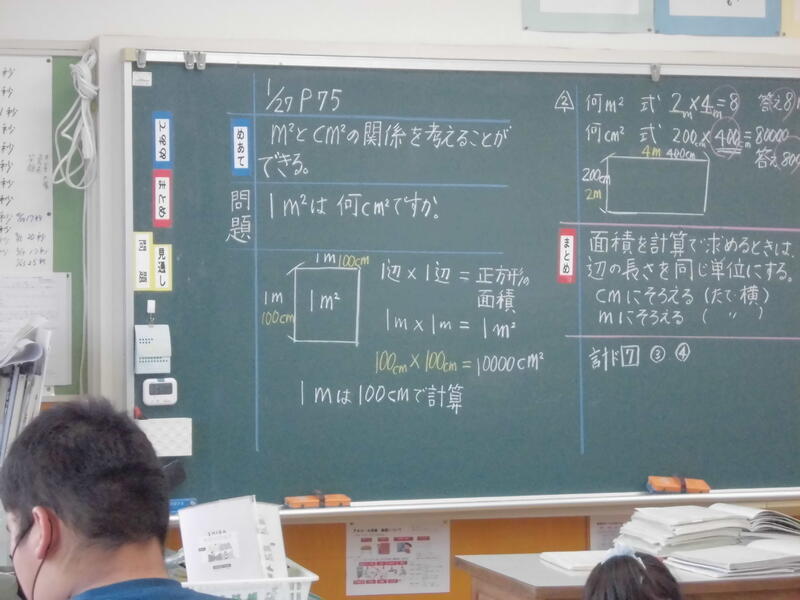 1/27 P75
めあて
m²とcm²の関係を考えることが
できる。
問題
1m²は 何cm²ですか。
1m 100cm
1m
100cm
1m²
1辺 × 1辺 = 正方形の
面積
1m × 1m = 1m²
100cm × 100cm = 10000cm²
1mは100cmで計算
まとめ
問題
見通し
② 何m² 式 2m×4m=8 答え8
何cm² 式 200cm×400cm=80000
答え800
4m 400cm
200cm
2m
まとめ
面積を計算で求めるときは、
辺の長さを同じ単位にする。
cmにそろえる (たて・横)
mにそろえる ( 〃 )
計ド 7 ③ ④